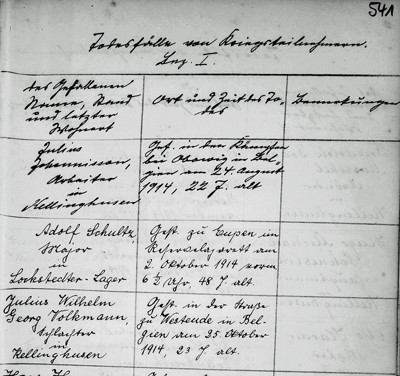 541
Todesfälle von Kriegsteilnehmern.
Bez. I.
des Gefallenen
Name, Stand
und letzter
Wohnort
Ort und Zeit des To-
des
Bemerkungen
Julius
Johannisson,
Arbeiter
in
Kellinghusen
Gef. in den Kämpfen
bei in Bel-
gien am 24. August
1914, 22 J. alt
Adolf Schultz,
Major
in
Lockstedter-Lager
Gest. zu Eupen im
Reservelazarett am
2. Oktober 1914 vorm
6 ½ Uhr, 48 J. alt.
Julius Wilhelm
Georg Volkmann,
Schlachter
in
Kellinghusen
Gest. in der Straße
zu Westende in Bel-
gien am 25. Oktober
1914, 23 J. alt.